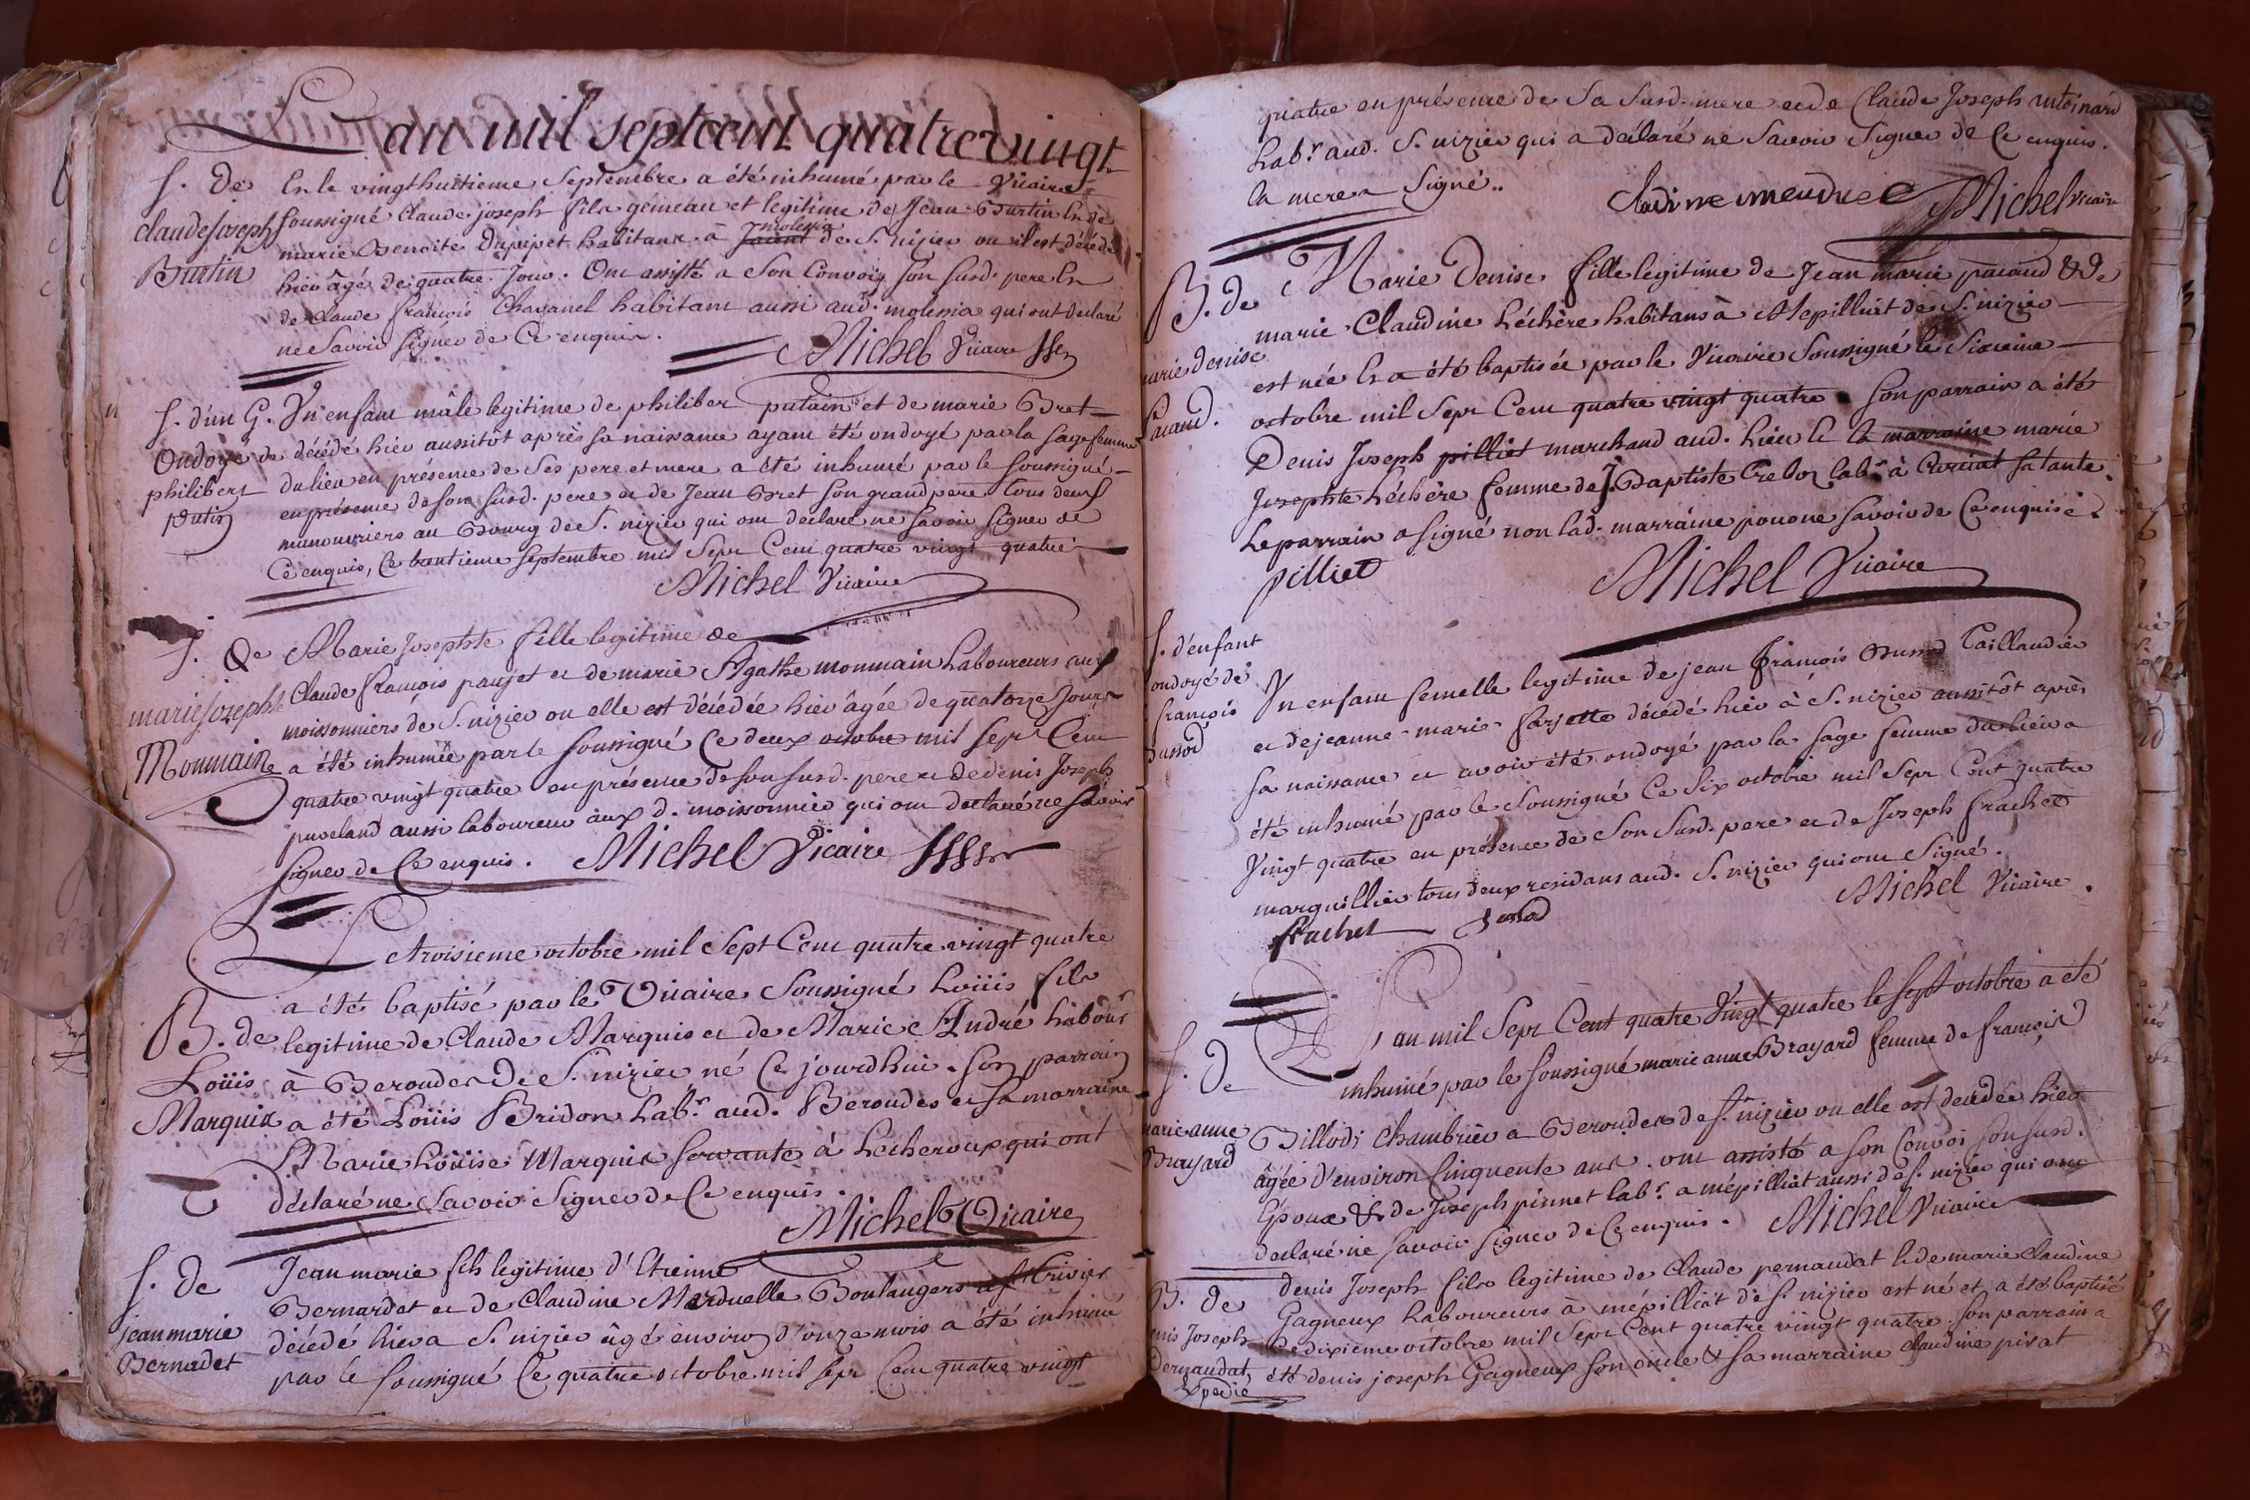 L'an mil sept cent quatre vingt
S. de
claude joseph
Burtin
Et le vingt huitieme Septembre a été inhumé par le Vicaire
soussigné Claude joseph fils gemeau et legitime de Jean Burtin et de
marie Benoite Dupupet habitans à molessia de St. nizier ou il est décédé
hier âgé de quatre Jour. Ont assisté a Son Convoy Son Susd. pere et
de Claude françois Chavanel habitant aussi aud. molessia qui ont declaré
ne Savoir Signer de Ce enquis.
Michel Vicaire
S. d'un G.
Ondoyé de
philibert
putin
Un enfant mâle legitime de philiber putain et de marie Bret
décédé hier aussitôt après sa naissance ayant été ondoyé par la sage femme
du lieu en présence de Ses pere et mere a été inhumé par le soussigné
en présence de son susd. pere et de Jean Bret son grand pere tous deux
manouvriers au Bourg de St. nizier qui ont declaré ne Savoir Signer de
Ce enquis, Ce trentieme Septembre mil Sept Cent quatre vingt quatre
Michel Vicaire
S. De
marie Josephte
Monmain
Marie Josephte fille legitime de
Claude françois paujet et de marie Agathe monmain Laboureurs aux
moissonniers de St. nizier ou elle est décédée hier âgée de quatorze Jours
a été inhumée par le soussigné Ce deux octobre mil Sept Cent
quatre vingt quatre en présence de son susd. pere et de denis Joseph
puveland aussi laboureur aux d. moissonnier qui ont declaré ne Savoir
Signer de Ce enquis. Michel Vicaire
Le troisieme octobre mil Sept Cent quatre vingt quatre
B. de
Loüis
Marquis
a été baptisé par le Vicaire Soussigné Loüis fils
legitime de Claude Marquis et de Marie André Labours
à Beroudes De St. nizier né Ce jourdhui. Son parrain
a été Loüis Bridon Labr. aud. Beroudes et Sa marraine
Marie Loüise Marquis Servante à Lecheroux qui ont
déclaré ne Savoir Signer de Ce enquis.
Michel Vicaire
S. de
jean marie
Bernadet
Jean marie fils legitime d'Etienne
Bernardet et de Claudine Marduelle Boulangers
décédé hier a St. nizier âgé environ d'onze mois a été inhumé
par le Soussigné Ce quatre octobre mil Sept Cent quatre vingt
quatre en présence de Sa Susd. mere et de Claude Joseph
habr. aud. St. nizier qui a déclaré ne Savoir Signer de Ce enquis.
la mere a Signé..
Michel Vicaire
B. de
marie Denise
pacaud.
Marie Denise fille legitime de Jean marie pacaud & de
marie Claudine Léchère habitans à Mepilliat de St. nizier
est née et a été baptisée par le Vicaire Soussigné le Sixieme
octobre mil Sept Cent quatre vingt quatre Son parrain a été
Denis Joseph pilliet marchand aud. lieu et la marraine marie
Josephte Léchère femme de J. Baptiste Crebon labr. à Curciat Sa tante
Le parrain a signé non lad. marraine pour ne savoir de Ce enquise.
pilliet
Michel Vicaire
S. d'enfant
ondoyé de
françois
Un enfant femelle legitime de jean françois Taillandier
et de jeanne marie farjette décédé hier à St. nizier aussitôt après
Sa naissance et avoir été ondoyé par la Sage femme du lieu a
été inhumé par le Soussigné Ce Six octobre mil Sept Cent quatre
Vingt quatre en présence de Son Susd. pere et de Joseph frachet
marguillier tous deux residans aud. St. nizier qui ont Signé.
frachet
Michel Vicaire.
S. De
marie anne
Brayard
L'an mil Sept Cent quatre Vingt quatre le Sept octobre a été
inhumé par le Soussigné marie anne Brayard femme de françois
Billodi Chambrier a Beroudes de St. nizier ou elle est décedée hier
âgée d'environ Cinquente ans. ont assisté a Son Convoi Son Susd.
Epoux & de Joseph pinnet labr. a mépilliat aussi de St. nizier qui ont
declaré ne Savoir Signer de Ce enquis. Michel Vicaire
B. de
denis Joseph
Pernaudat,
Expedié
Denis Joseph fils legitime de Claude pernaudat et de marie Claudine
Gagneux Laboureurs à mépilliat de St. nizier est né et a été baptisé
Ce dixieme octobre mil Sept Cent quatre vingt quatre. Son parrain a
été denis joseph Gagneux Son oncle & Sa marraine Claudine pirat